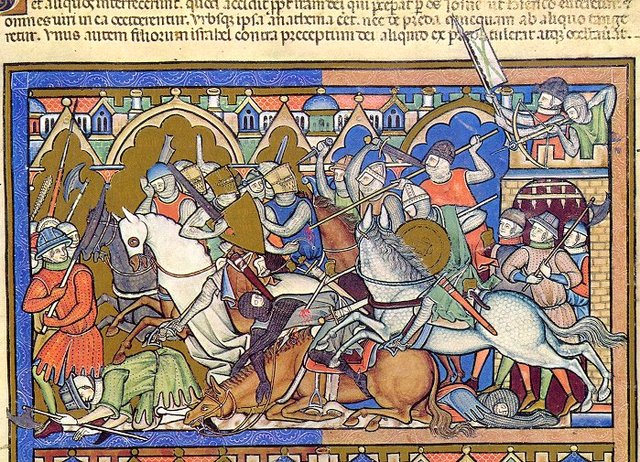 et aliquos interfecerunt. quod accidit ppt iram dei, qui p os Iosue ut Ierico
omnes uiri in ea occiderentur. Urbsq; ipsa anathema eēt. nec de preda quicquam ab aliquo tange
retur. Unus autem filiorum israhel contra preceptum dei aliquid ex preda tulerat atq; occultauit.